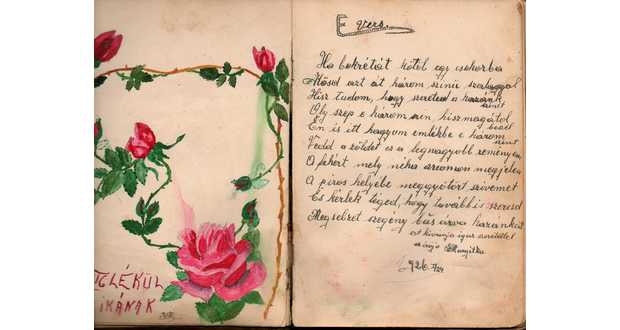 TGLÉKÜL
IKÁNAK
E vers.
Ha bokrétáit kötöl egy csokorba
Kösd azt át három színű szalaggal
Hisz tudom, hogy szereted a hazánk
színét
Oly szép e három szín kiszmagától
beszél
Én is itt hagyom emlékbe e három
színt
Vedd a zöldet ez a legnagyobb reményem
A fehért mely néha arcomon megjelen
A piros helyébe meggyötört szívemet
És kérlek téged, hogy továbbis szeresd
Megselzet szegény bús árva hazánkat
igaz szeretettel
926